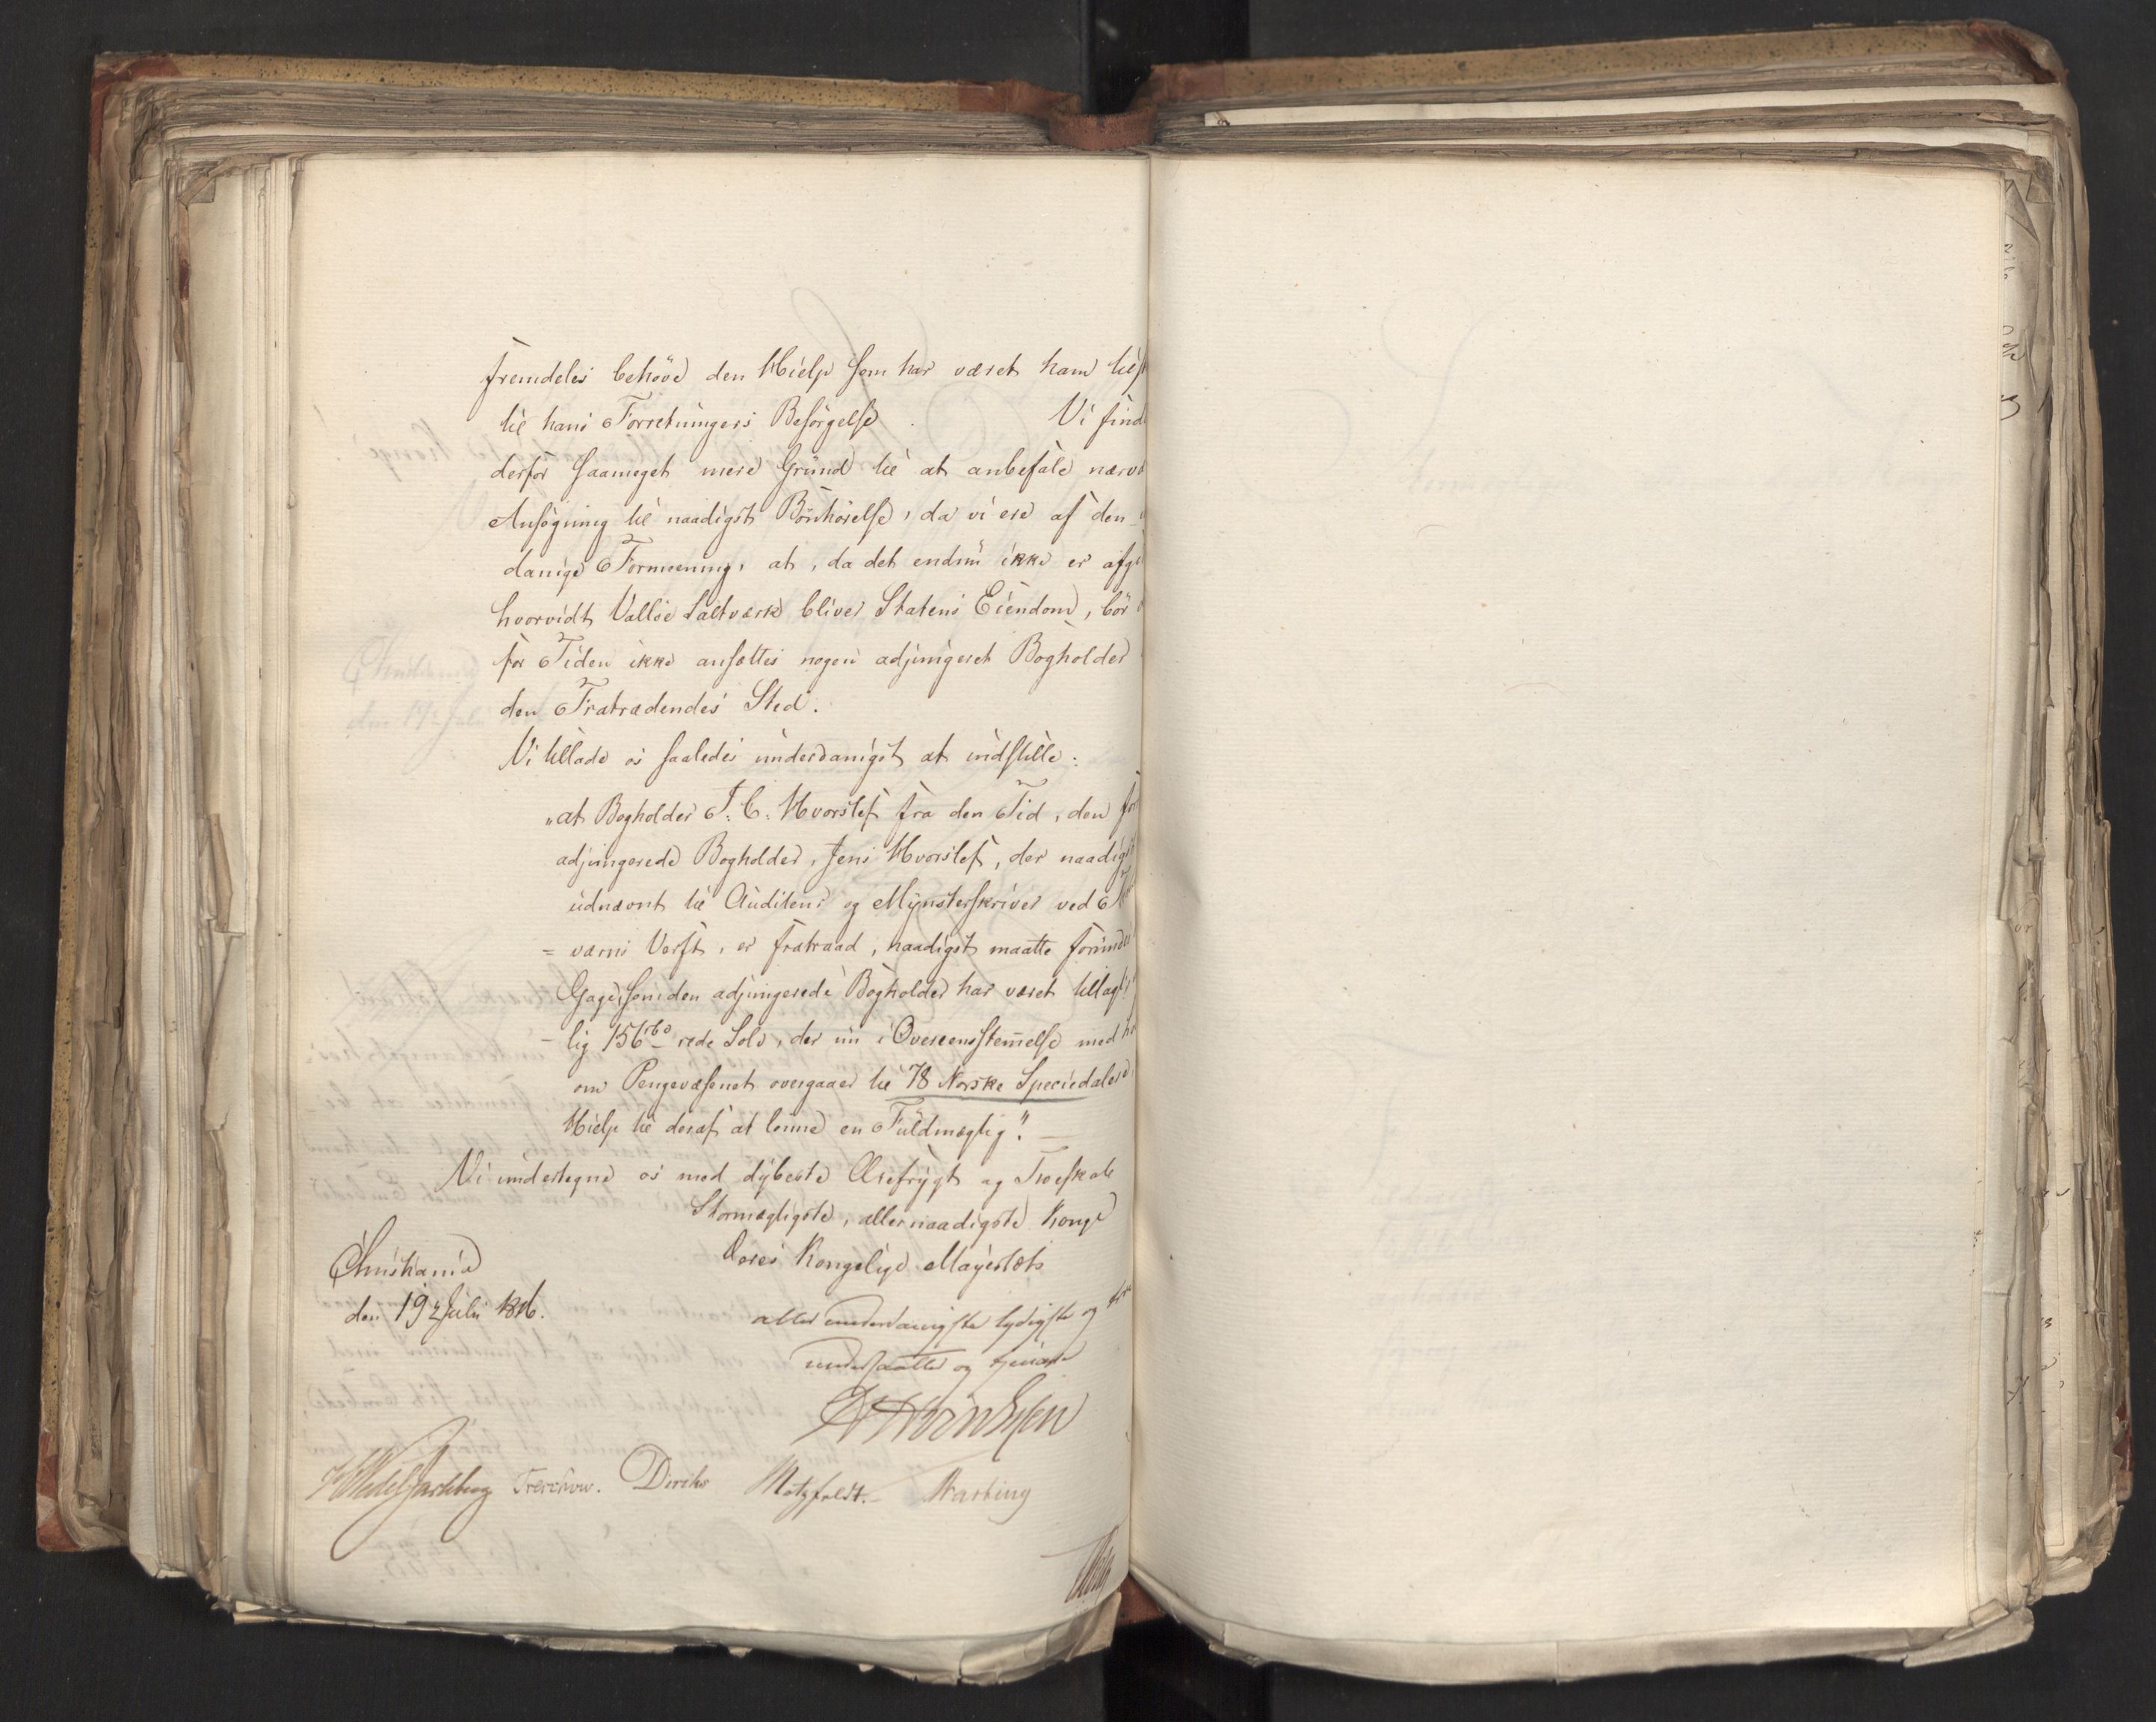 fremdeles behøve den Hielp som har været ham
til hans Forretningers Besørgelse. Vi find
derfor saameget mere Grund til at anbefale nærv
Ansøgning til naadigst Bønhørelse, da vi ere af den
danige Formeening, at, da det endnu ikke er afgi
hvorvidt Valløe Saltværk bliver Statens Eiendom, bør
for Tiden ikke ansættes nogen adjungeret Bogholder
den Fratrædendes Sted.
Vi tillade os saaledes underdanigst at indstille:
„at Bogholder J. C. Hvorslef fra den Tid, den for
adjungerede Bogholder, Jens Hvorslef, der naadigst
udnævnt til Auditeur og Mynsterskriver ved
= værns Verft, er fratraad, naadigst maatte forunde
Gage, som den adjungerede Bogholder har været tillagt
- lig 156 rbd rede Sølv, der nu i Overeensstemmelse med
om Pengevæsenet overgaaer til 78 Norske Speciedaler
Hielp til deraf at lønne en Fuldmægtig". —
Vi undertegne os med dybeste Ærefrygt og Troeskab
Stormægtigste, allernaadigste Konge
Deres Kongelige Mayestæts
Christiania
den 19de Julii 1816.
allerunderdanigste lydigste og
undersaatter og tjenere
Wedel Jarlsberg Treschow. Diriks Motzfeldt.